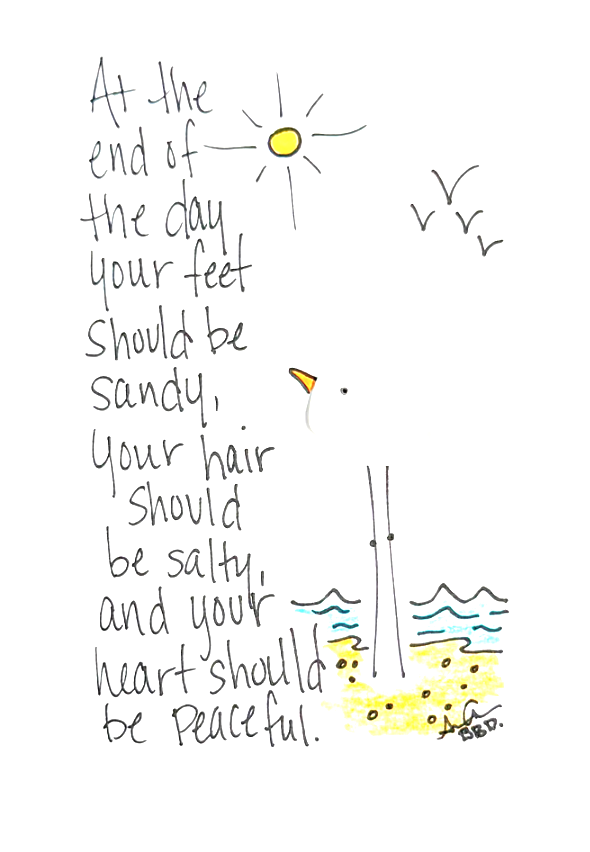 At the
end of
the day
your feet
should be
sandy,
your hair
should
be salty,
and your
heart should
be peaceful.
BBD.